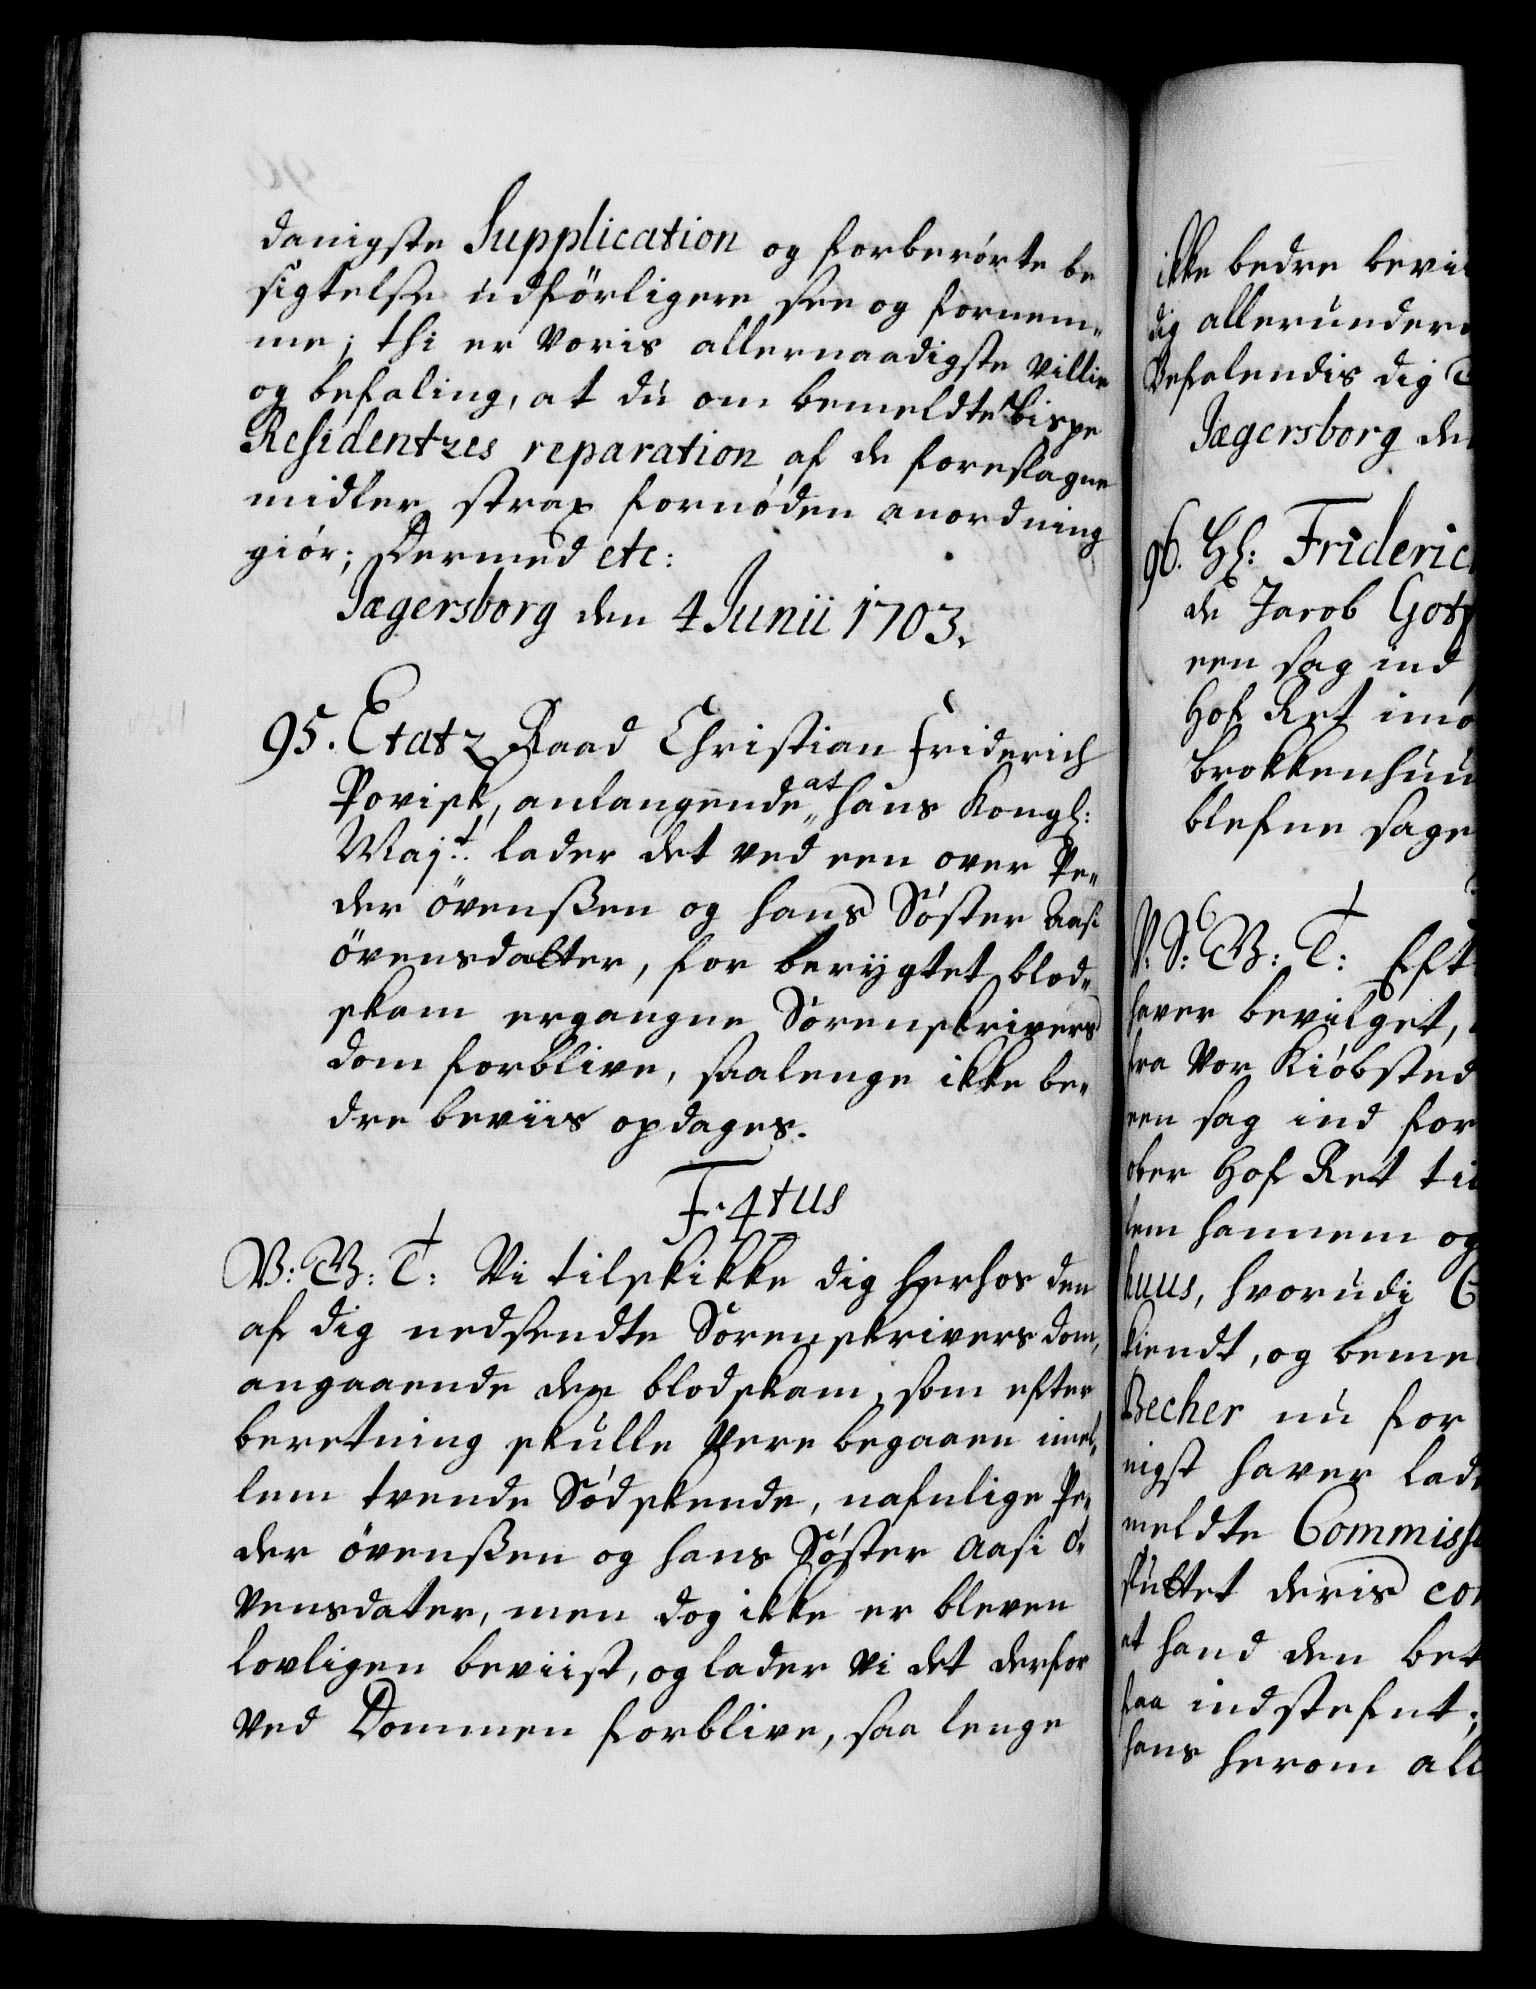 danigste Supplication og forberörte be
sigtelse udförligere see og fornem„
me; thi er voris allernaadigste villie
og befaling, at du om bemeldte Bispe
Residentzes reparation af de foreslagne
midler strax fornöden anordning
giör; Dermed etc:
Jægersborg den 4 Junii 1703.
95. Etatz Raad Christian Friderich
Povisk, anlangende at hans Kongl:
Majt: lader det ved een over Pe„
der övenßen og hans Söster Aasi
övensdatter, for berygtet blod„
skam ergangne Sörenskrivers
dom forblive, saalenge ikke be„
dre beviis opdages.
F. 4tus
V: G: T: Vi tilskikke dig herhos den
af dig nedsendte Sorenskrivers dom,
angaaende den blodskam, som efter
beretning skulle være begaaen imel„
lem tvende Södskende, nafnlige Pe„
der övenßen og hans Söster Aasi ö„
vensdater, men dog ikke er bleven
lovligen beviist, og lader vi det derfor
ved Dommen forblive, saa lenge
ikke bedre bevii
dig allerunder
Befalendis dig
Jægersborg den
96. Hl: Frideric
de Jacob
een sag ind
Hof Ret imo
Brokkenhuu
blefne sage
V: S: G: T: Eft
haver bevilget,
fra vor Kiöbsted
een sag ind for
ober Hof Ret til
lem hannem og
huus, hvorudi
kiendt, og beme
Becher nu for
nigst haver lad
meldte Commiss
sluttet deris co
at hand den bet
faa indstefnt;
hans herom all